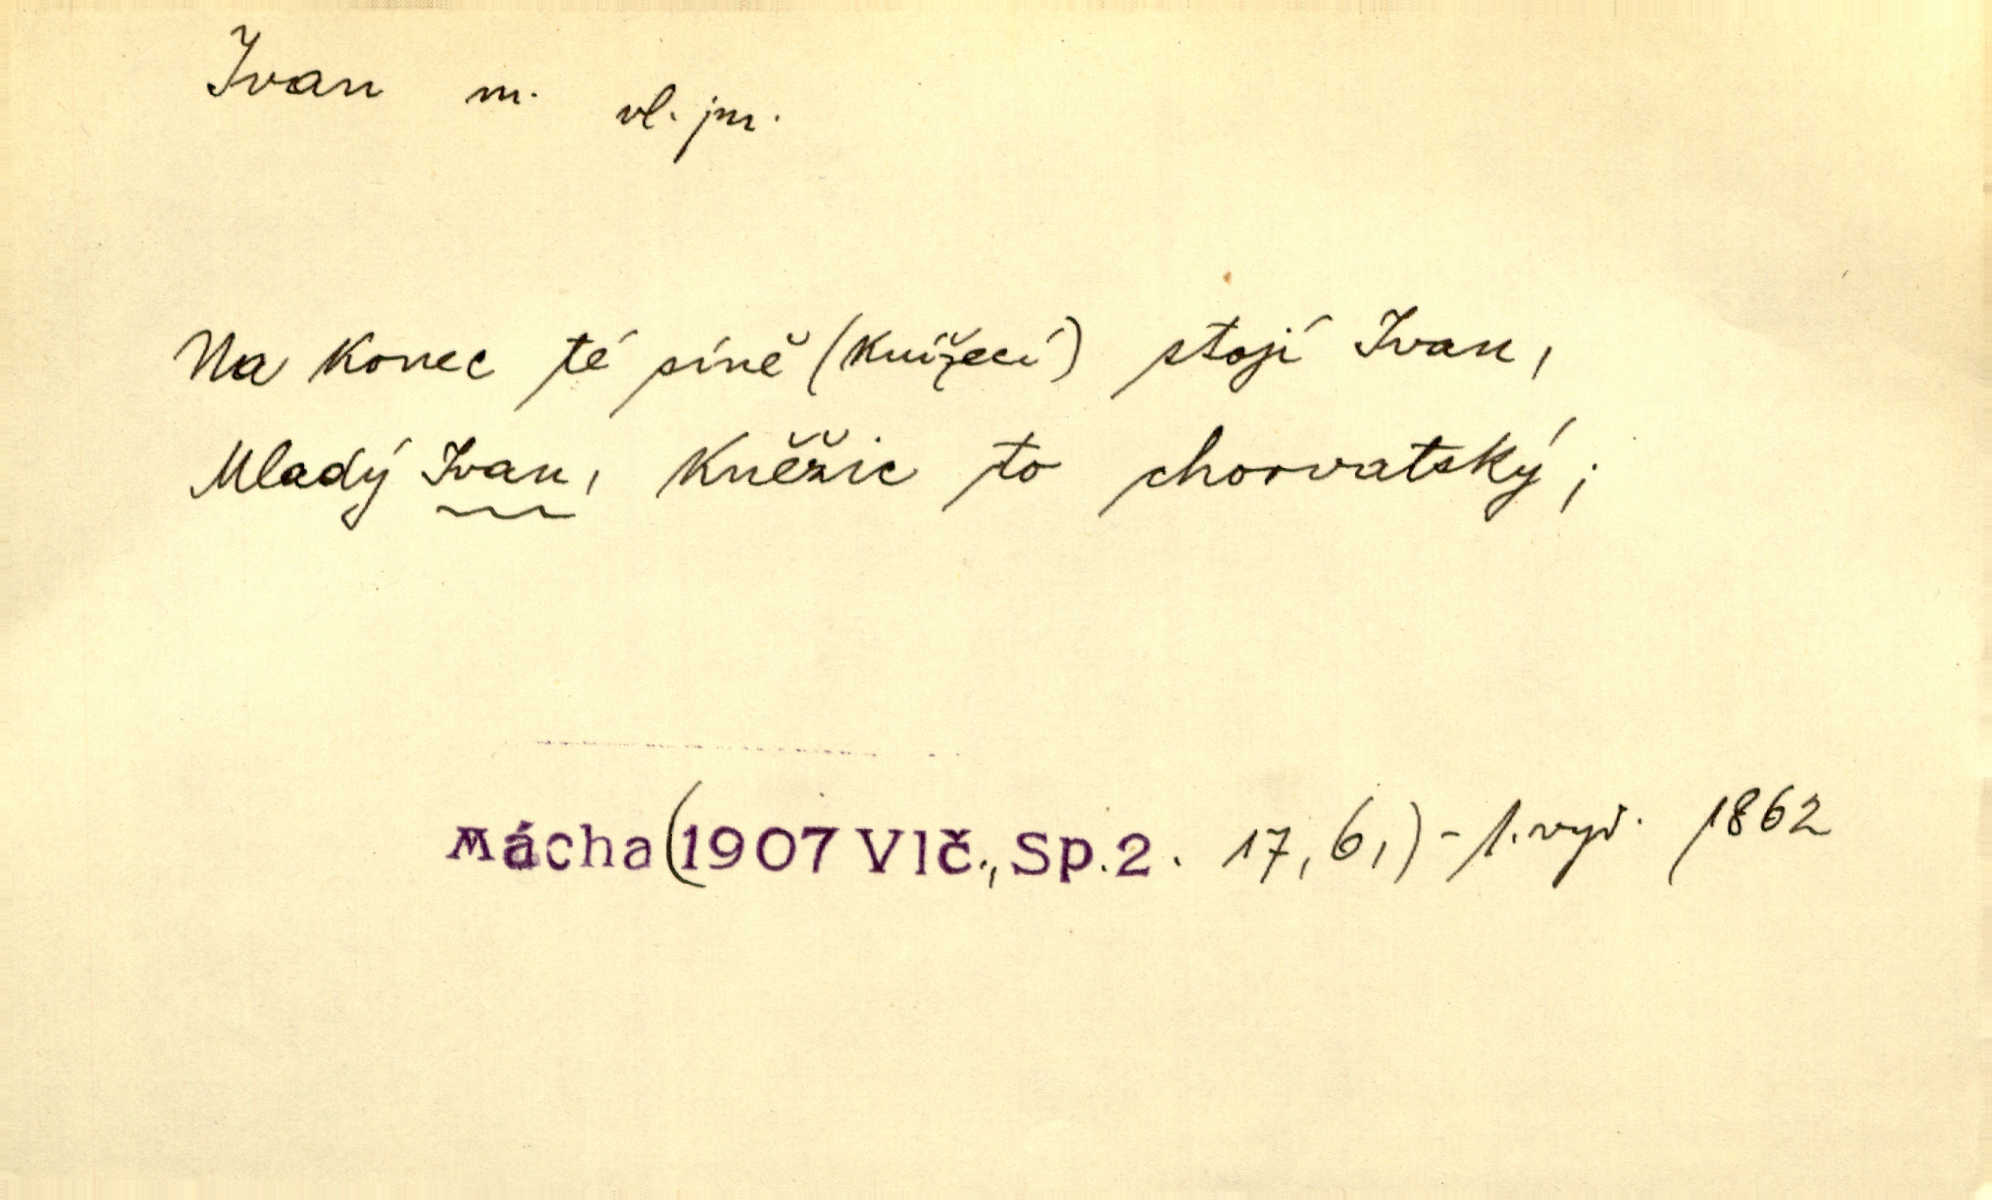 Ivan m. vl. jm.
Na konec té síně (knížecí) stojí Ivan,
Mladý Ivan, kněžic to chorvatský;
Mácha (1907 Vlč., Sp. 2. 17, 6,) - 1. vyd. 1862